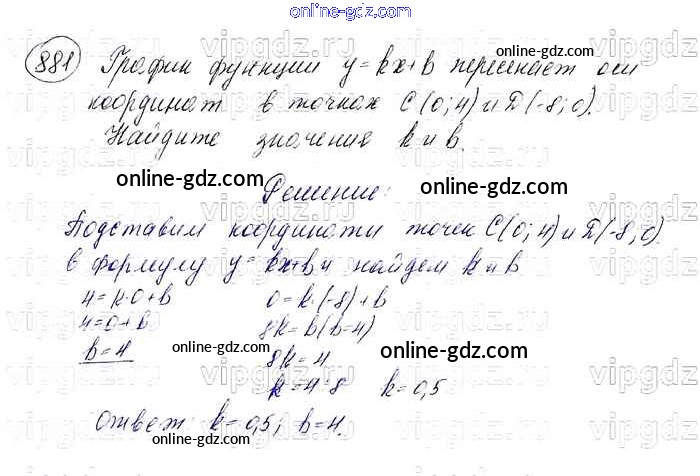 online-gdz.com
881 График функции y=kx+b пересекает оси
online-gdz.com
координат в точках C(0;4) и D(-8;0).
Найдите значения k и b.
online-gdz.com
Решение:
online-gdz.com
Подставим координаты точек C(0;4) и D(-8;0)
в формулу y=kx+b и найдем k и b
4=k·0+b 0=k·(-8)+b
4=0+b 8k=b(b=4)
b=4 8k=4
online-gdz.com
online-gdz.com
k=4:8 k=0,5
Ответ: k=0,5; b=4.
online-gdz.com
online-gdz.com
vipgdz.ru